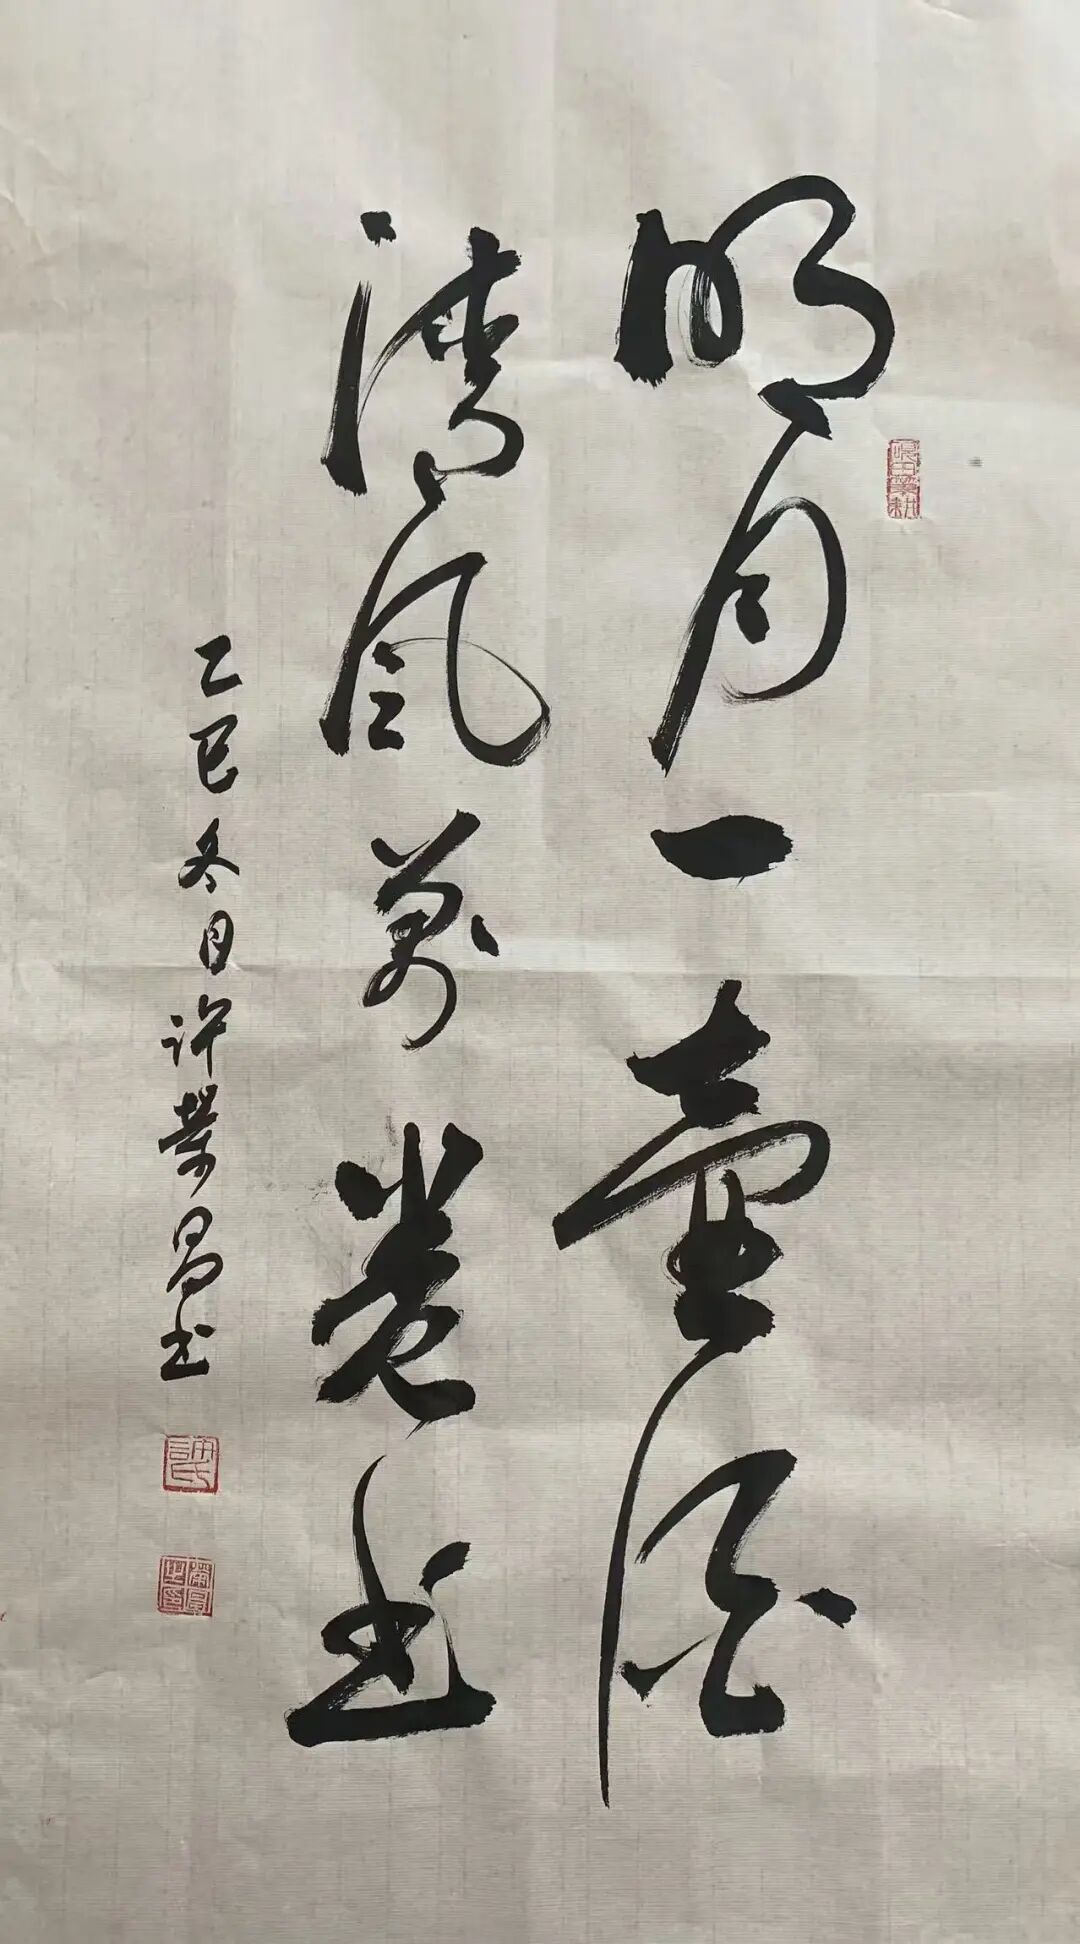 明月一壶酒
清风万卷书
乙巳冬月许荣昌书
许氏